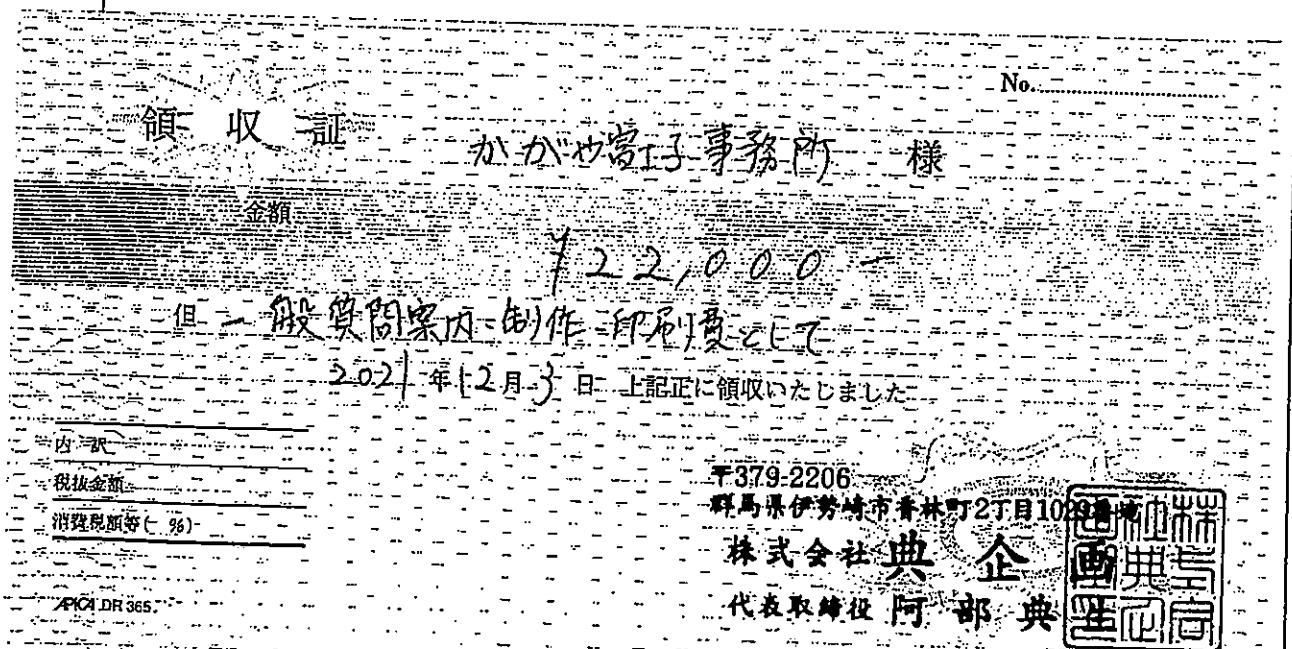 No.
領収証
かがや富士子事務所 様
金額
¥22,000-
但 一般質問案内制作印刷費として
2021年12月3日 上記正に領収いたしました
内訳
税抜金額
消費税額等( %)
〒379-2206
群馬県伊勢崎市香林町2丁目1029番地
株式会社 典企画
代表取締役 阿部典
APICA DR 365